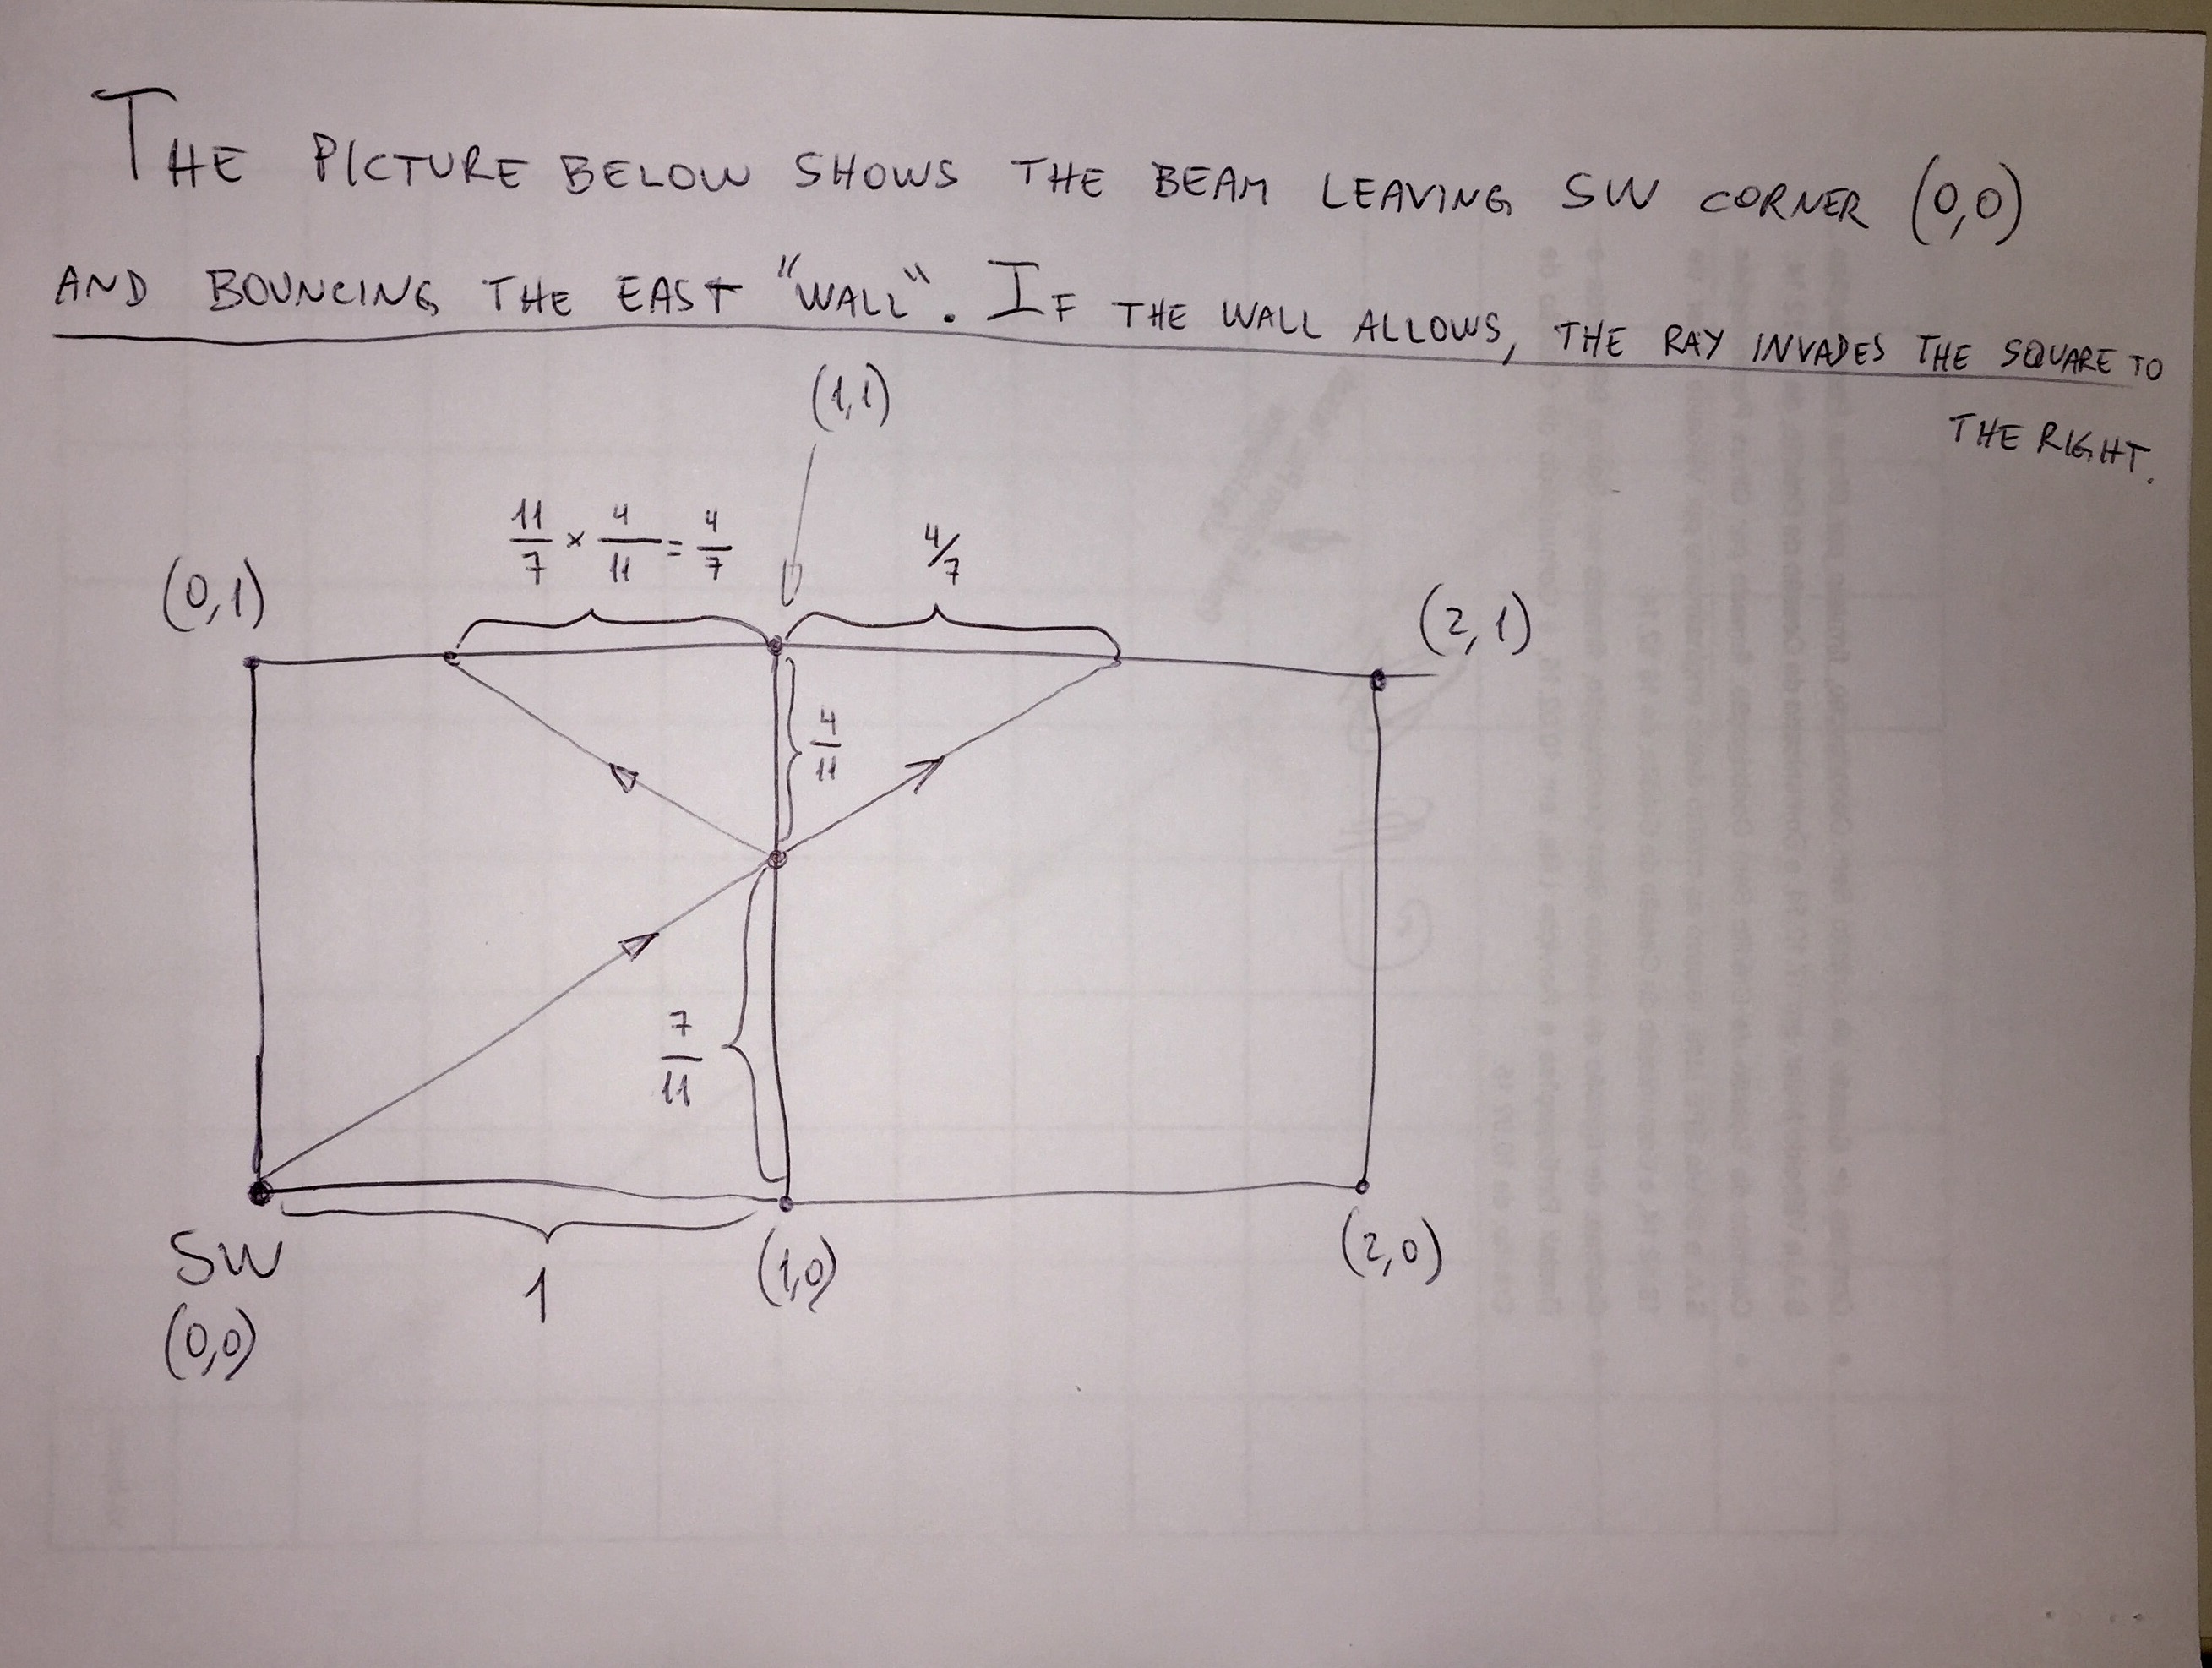 THE PICTURE BELOW SHOWS THE BEAM LEAVING SW CORNER (0,0)
AND BOUNCING THE EAST "WALL". IF THE WALL ALLOWS, THE RAY INVADES THE SQUARE TO
THE RIGHT.
(1,1)
11/7 × 4/11 = 4/7
4/7
(0,1)
(2,1)
4/11
7/11
SW
(0,0)
1
(1,0)
(2,0)